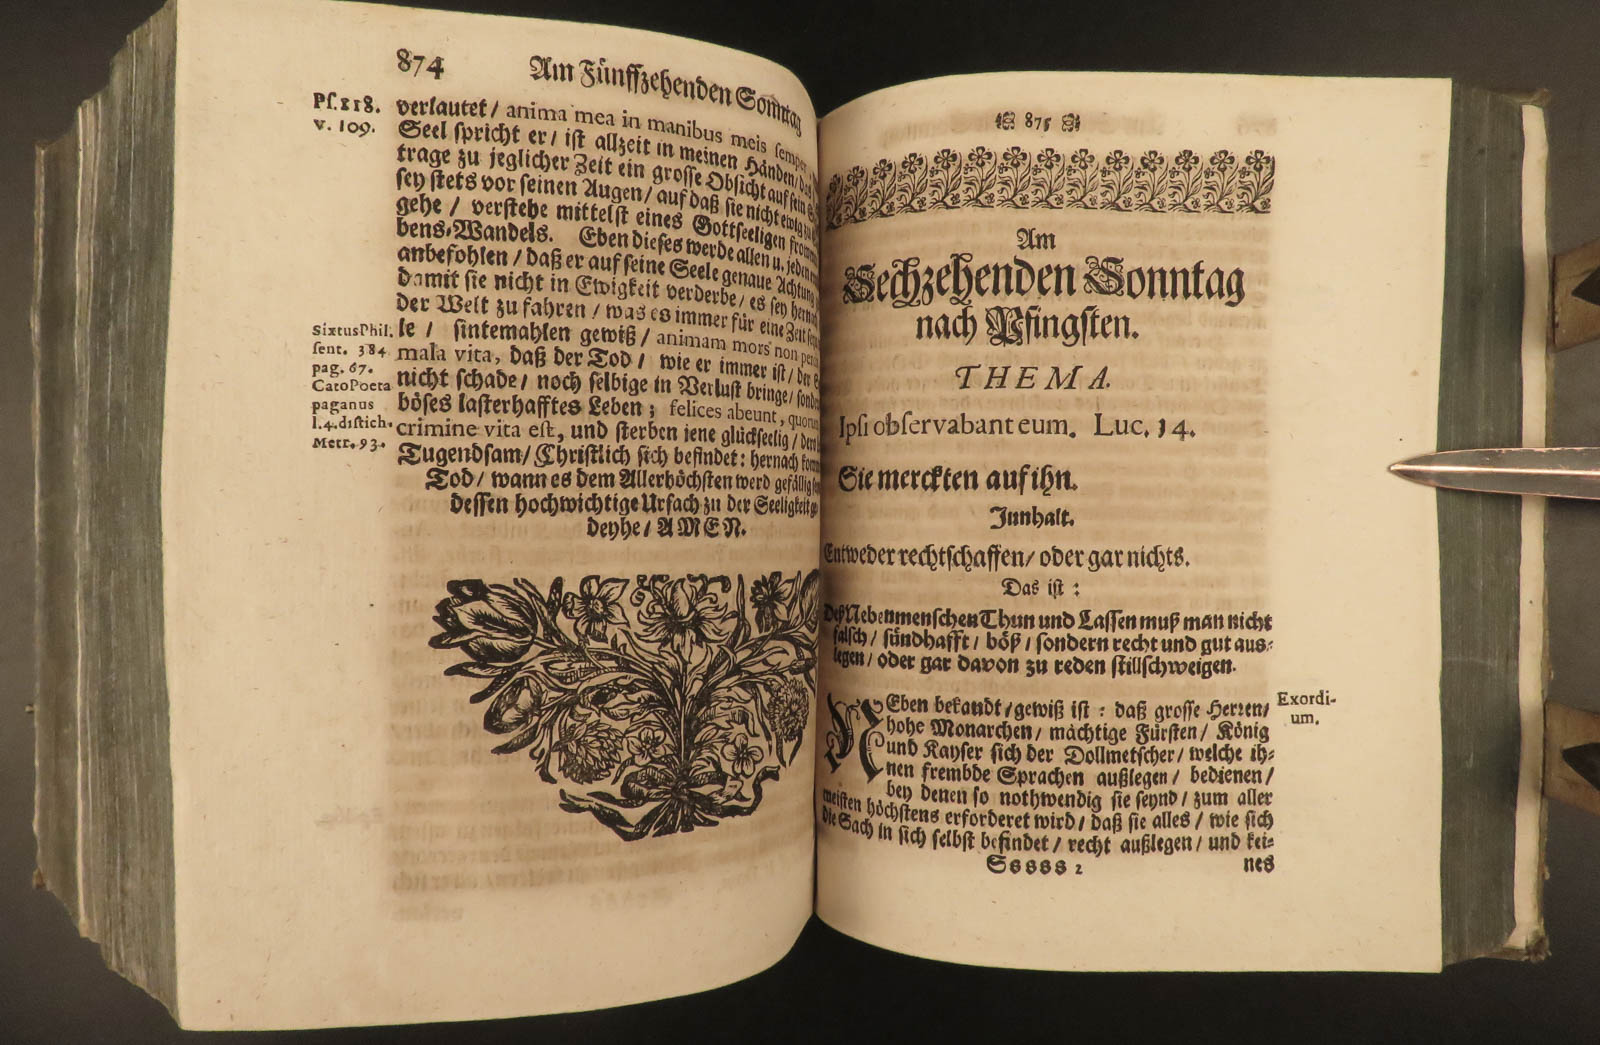 874 Am Fünffzehenden Sonntag
Ps. 118.
v. 109.
verlautet / anima mea in manibus meis semper
Seel spricht er / ist allzeit in meinen Händen /
trage zu jeglicher Zeit ein grosse Obsicht auf sein
sey stets vor seinen Augen / auf daß sie nicht ewig zu
gehe / verstehe mittelst eines Gottseeligen frommen
bens-Wandels. Eben dieses werde allen u. jeden
anbefohlen / daß er auf seine Seele genaue Achtung
damit sie nicht in Ewigkeit verderbe / es sey hernach
der Welt zu fahren / was es immer für eine Zeit seyn
SixtusPhil.
sent. 384
pag. 67.
CatoPoeta
paganus
l.4.distich.
Metr. 93.
le / sintemahlen gewiß / animam mors non
mala vita, daß der Tod / wie er immer ist / der
nicht schade / noch selbige in Verlust bringe / sondern
böses lasterhafftes Leben ; felices abeunt, quorum
crimine vita est, und sterben jene glückseelig /
Tugendsam / Christlich sich befindet : hernach
Tod / wann es dem Allerhöchsten werd gefällig
dessen hochwichtige Ursach zu der Seeligkeit ge-
deyhe / AMEN.
875
Am
Sechzehenden Sonntag
nach Pfingsten.
THEMA.
Ipsi observabant eum. Luc. 14.
Sie merckten auf ihn.
Innhalt.
Entweder rechtschaffen / oder gar nichts.
Das ist :
Deß Nebenmenschen Thun und Lassen muß man nicht
falsch / sündhafft / böß / sondern recht und gut aus-
legen / oder gar davon zu reden stillschweigen.
Exordi-
um.
NEben bekandt / gewiß ist : daß grosse Herren /
hohe Monarchen / mächtige Fürsten / König
und Kayser sich der Dollmetscher / welche ih-
nen frembde Sprachen außlegen / bedienen /
bey denen so nothwendig sie seynd / zum aller
meisten höchstens erforderet wird / daß sie alles / wie sich
die Sach in sich selbst befindet / recht außlegen / und kei-
Sssss 2 nes